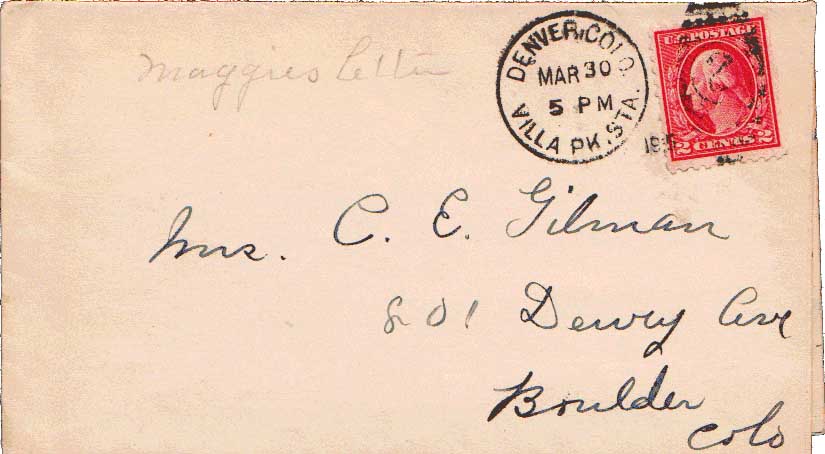 Maggies letter
DENVER, COLO.
MAR 30
5 PM
VILLA PK. STA.
U.S. POSTAGE
2 CENTS 2
Mrs. C. E. Gilman
801 Dewey Ave
Boulder
Colo